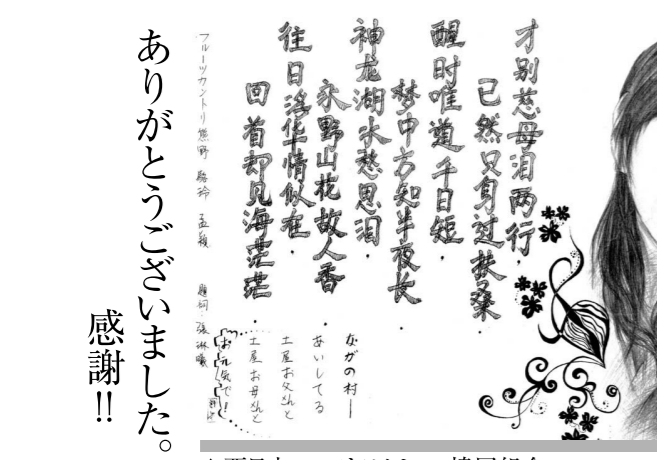 才别慈母泪两行.
已然只身过扶桑.
醒时唯道千日短.
梦中方知半夜长.
神龙湖水愁思泪.
永野山花故人香.
往日浮华情似在.
回首却见海茫茫.
ながの村ー
あいしてる
土屋お父さんと
土屋お母さんと
お元気で!
フルーツカントリ熊野
ありがとうございました。
感謝!!